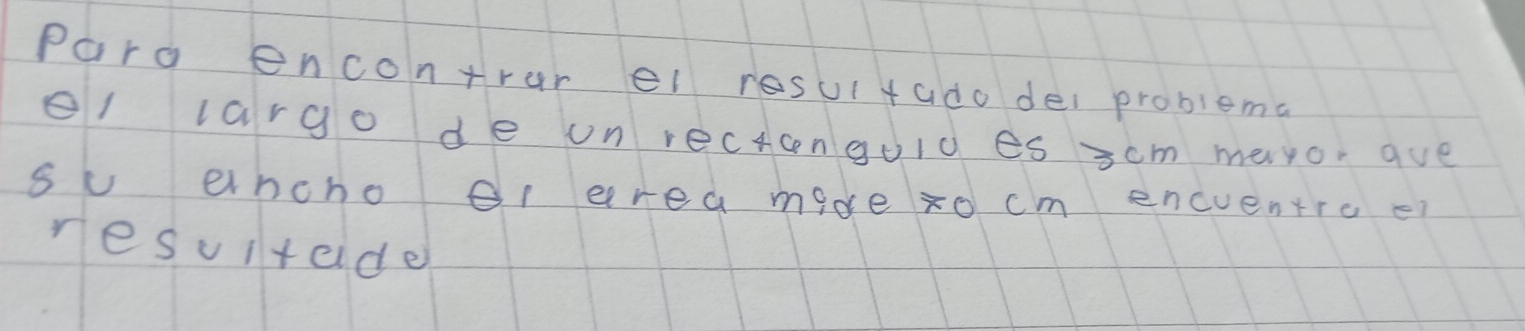 Para encontrar el resultado del problema
el largo de un rectangulo es 3cm mayor que
su ancho el area mide 70 cm encuentra el
resultado